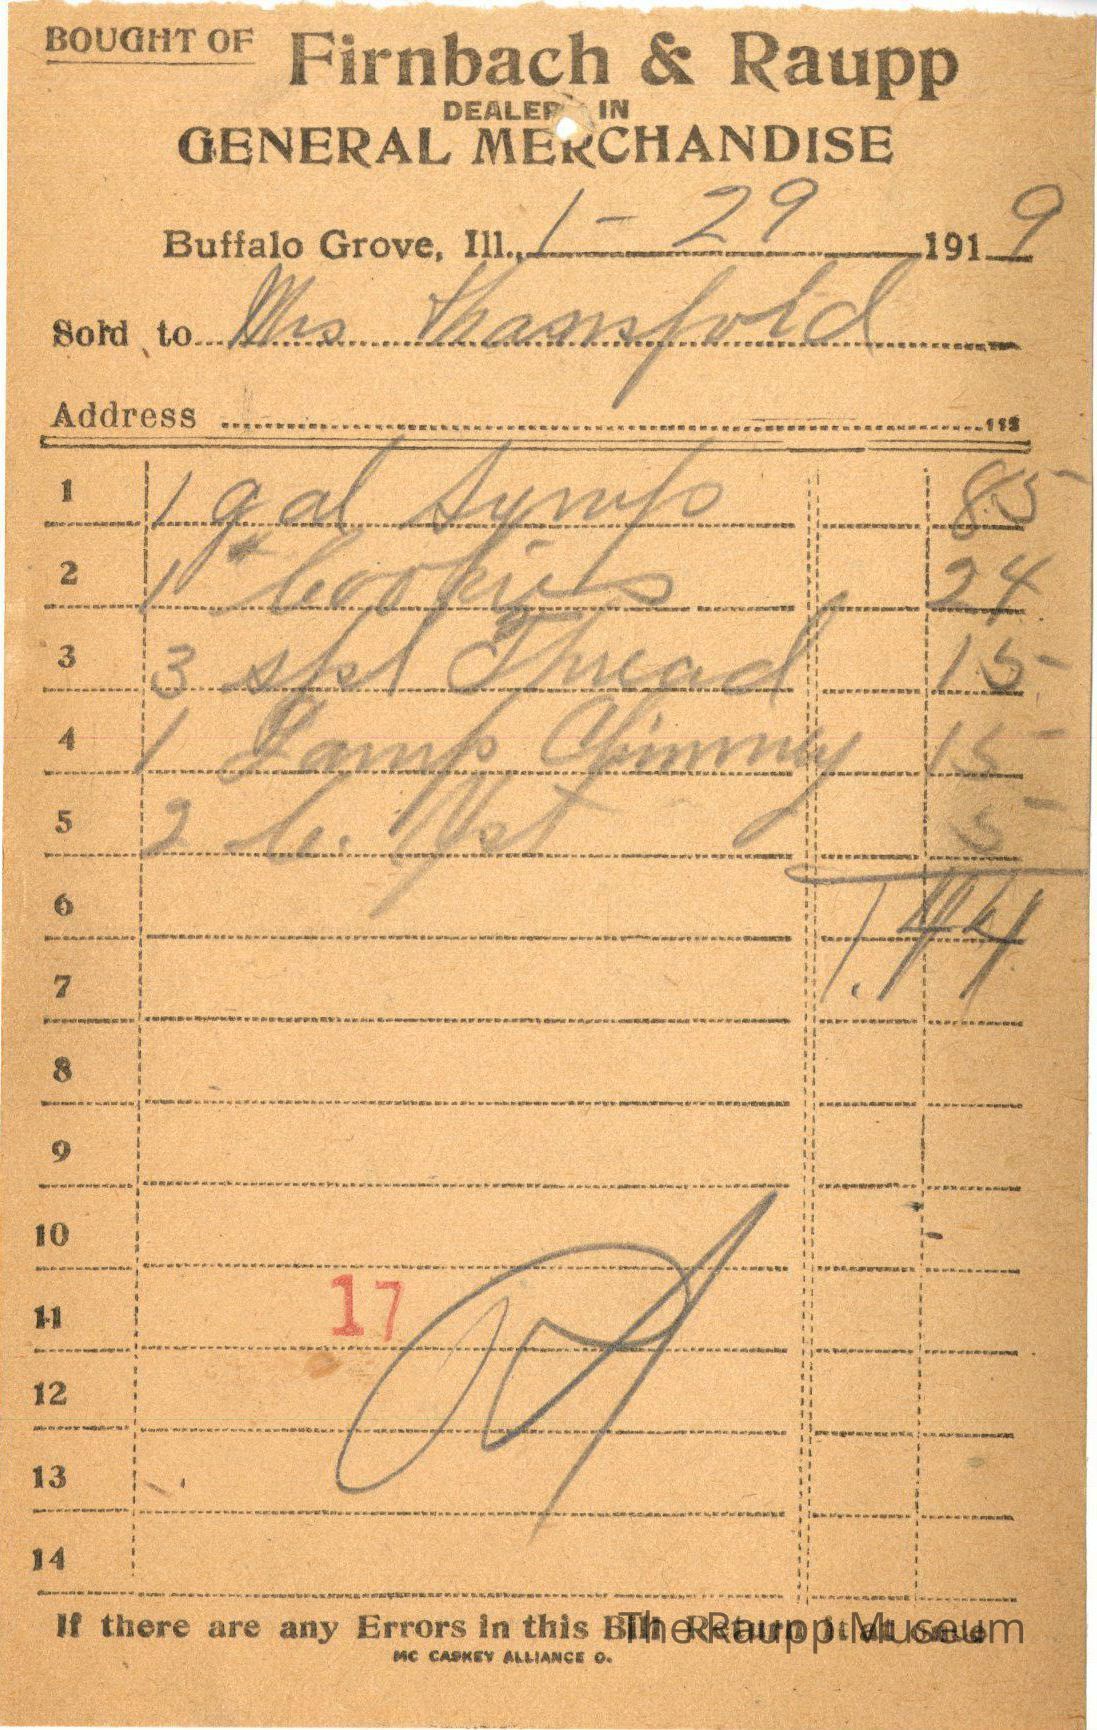 BOUGHT OF Firnbach & Raupp
DEALER IN
GENERAL MERCHANDISE
Buffalo Grove, Ill., 1 - 29 1919
Sold to Mrs
Address
1 1 gal Syrup 85
2 1# Cookies 24
3 3 spl Thread 15
4 1 Lamp Chimney 15
5 2 c. Yst 5
6 1.44
7
8
9
10
11 17
12
13
14
If there are any Errors in this Bill Return it at once
The Raupp Museum
MC CASKEY ALLIANCE O.